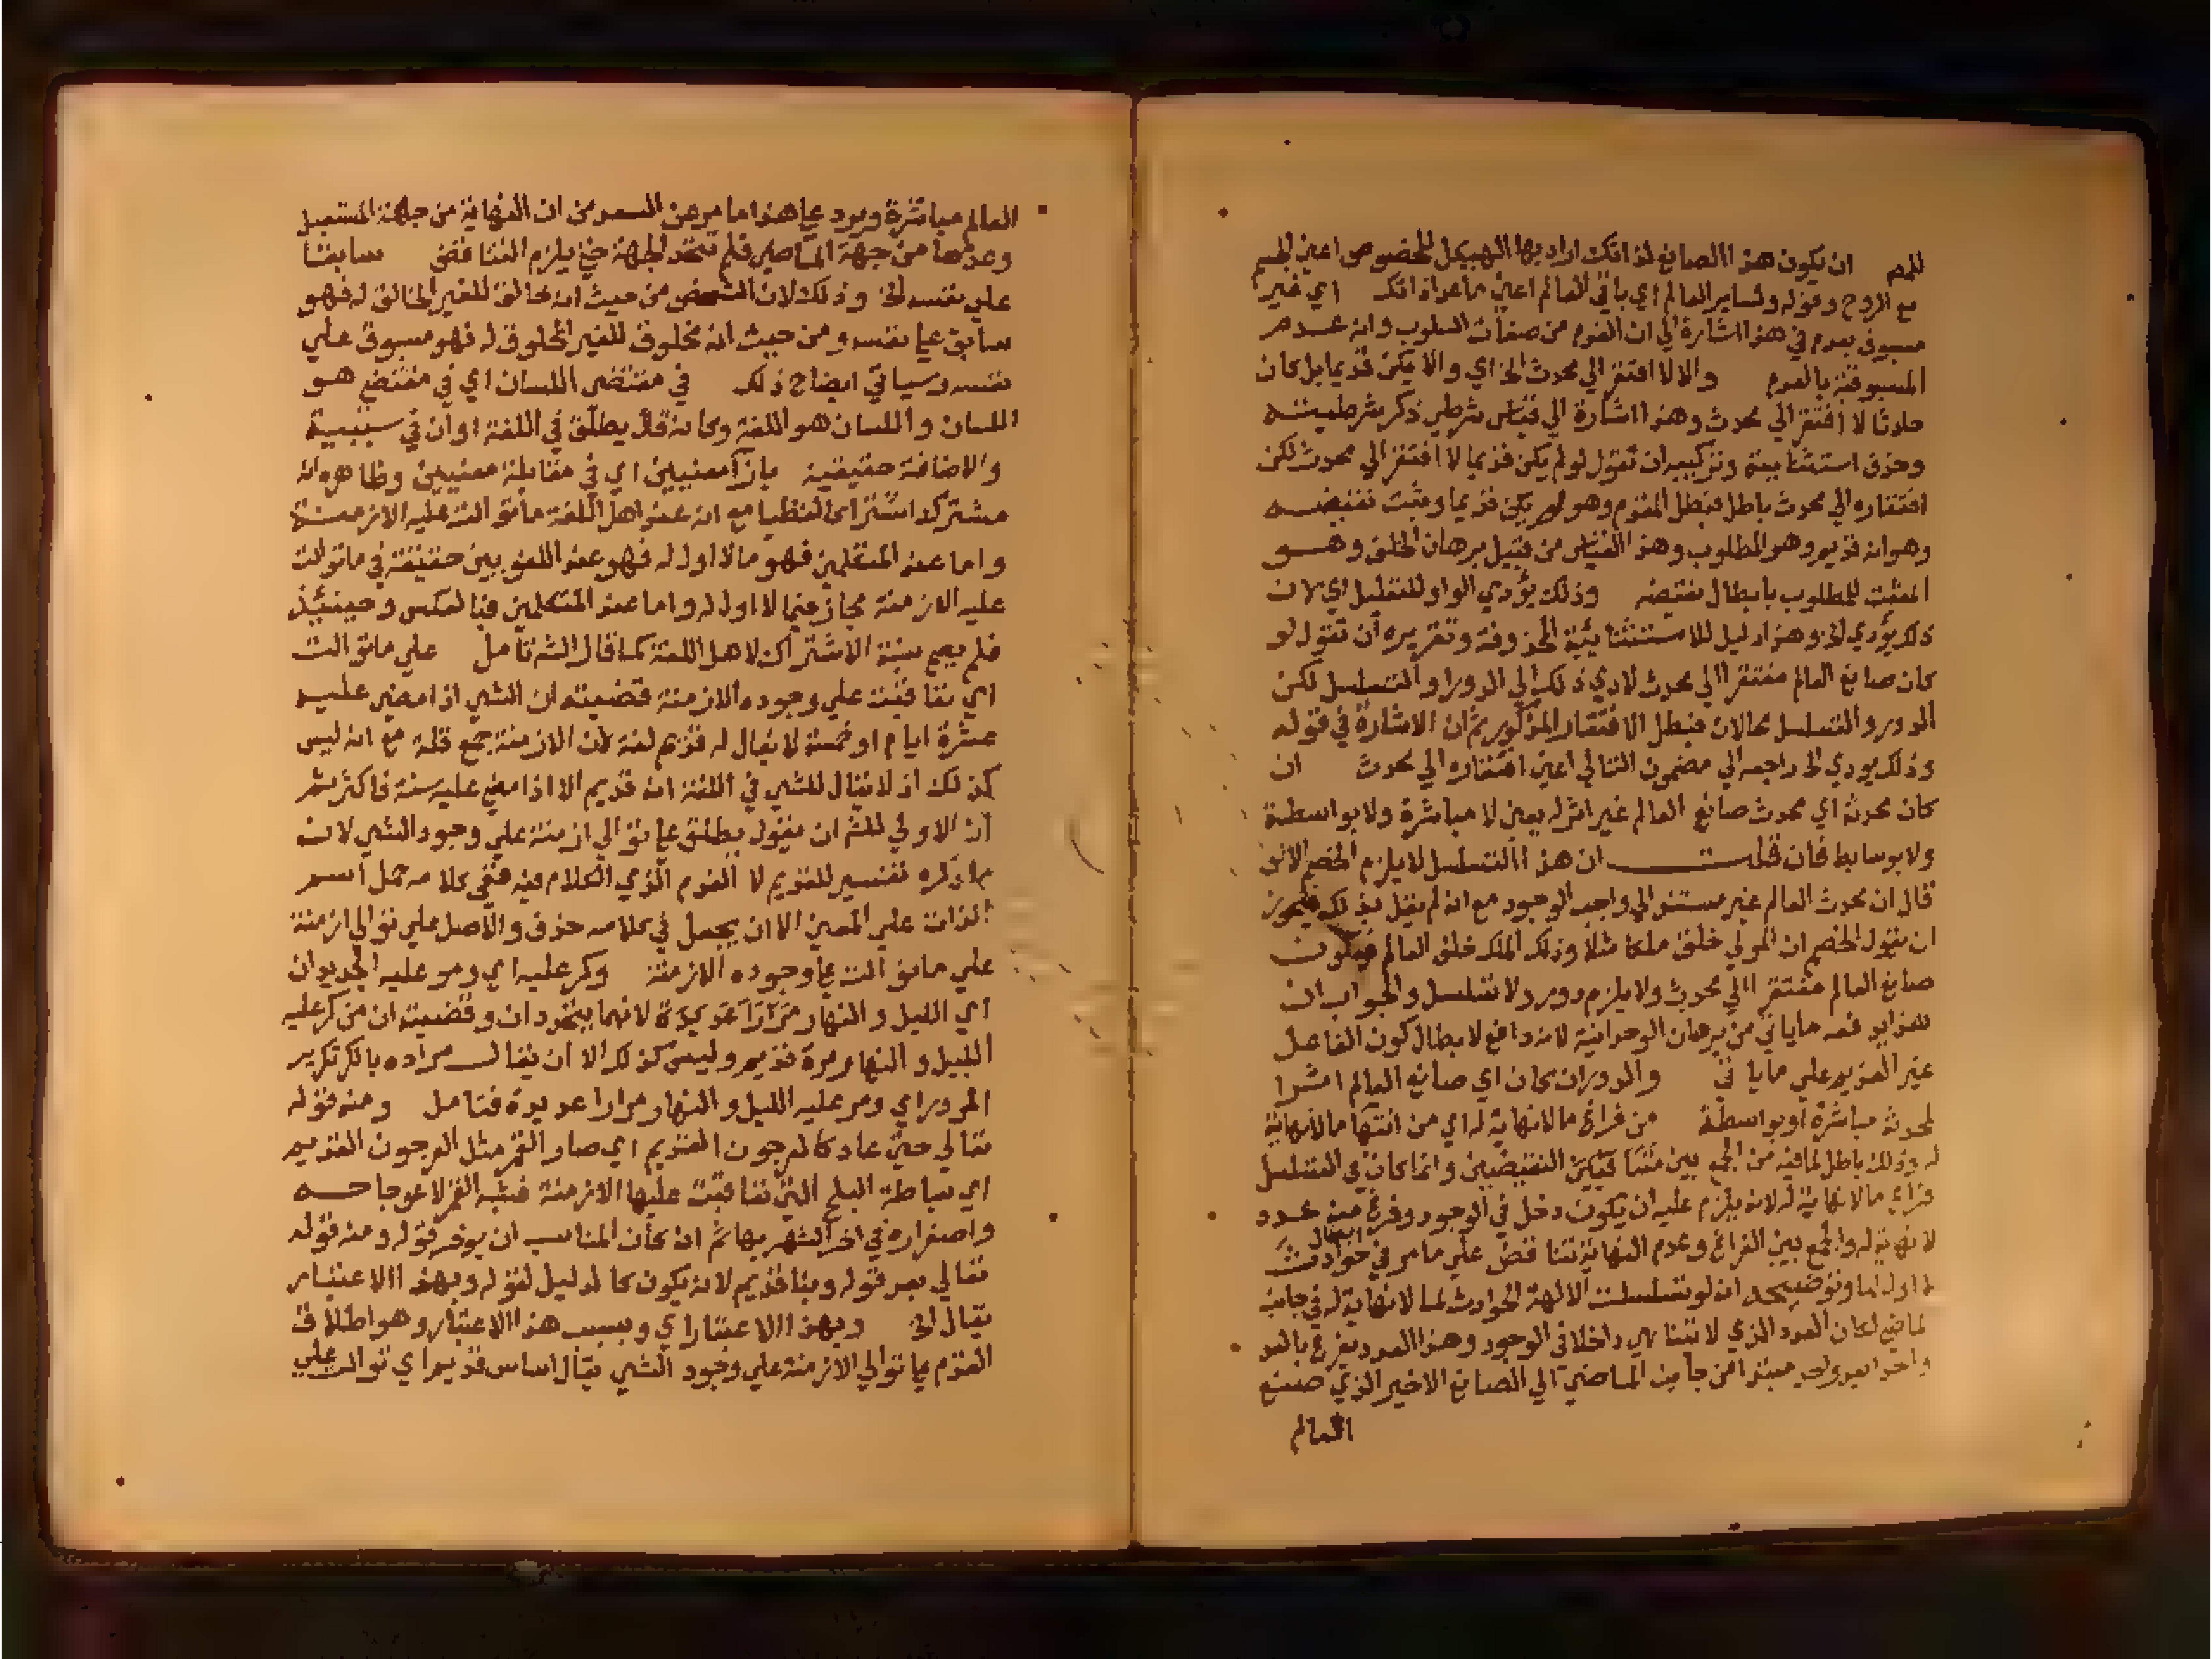 ان يكون هذا الصانع لذاتك اراد بها الهيكل المخصوص اعني الجسم
مع الروح وقوله ولساير العالم اي باقي العالم اعني ما عدا ذاتك اي غير
مسبوق بعدم في هذا اشارة الي ان القدم من صفات السلوب وانه عدم
المسبوقية بالعدم والا لافتقر الي محدث الخ اي والا يكن قديما بل كان
حادثا لا افتقر الي محدث وهذا اشارة الي قياس شرطي ذكر شرطيته
وحذف استثنائيته وتركيبه ان تقول لو لم يكن قديما لا افتقر الي محدث لكن
افتقاره الي محدث باطل فبطل المقدم وهو لم يكن قديما وثبت نقيضه
وهو انه قديم وهو المطلوب وهذا القياس من قبيل برهان الخلف وهو
المثبت للمطلوب بابطال نقيضه وذلك يؤدي الواو للتعليل اي لان
ذلك يؤدي الخ وهذا دليل للاستثنائية المحذوفة وتقريره ان تقول لو
كان صانع العالم مفتقرا الي محدث لادي ذلك الي الدور او التسلسل لكن
الدور والتسلسل محالان فبطل الافتقار المذكور ثم ان الاشارة في قوله
وذلك يودي الخ راجعه الي مضمون التالي اعني افتقاره الي محدث ان
كان محدثه اي محدث صانع العالم غير اثر له يعني لا مباشرة ولا بواسطة
ولا بوسايط فان قلت ان هذا التسلسل لا يلزم الخصم الا لو
قال ان محدث العالم غير مستند الي واجب الوجود مع انه لم يقل بذلك فيجوز
ان يقول الخصم ان المولي خلق ملكا مثلا وذلك الملك خلق العالم فيكون
صانع العالم مفتقرا الي محدث ولا يلزم دور ولا تسلسل والجواب ان
هذا يدفعه ما ياتي من برهان الوحدانية لانه دافع لابطال كون الفاعل
غير القديم علي ما ياتي والدور ان كان اي صانع العالم اثرا
لمحدثه مباشرة او بواسطة من فراغ ما لا نهاية له اي من انتها ما لا نهاية
له وذلك باطل لما فيه من الجمع بين متنافيين النقيضين وانما كان في التسلسل
فراغ ما لا نهاية له لانه يلزم عليه ان يكون دخل في الوجود وفرغ منه عدد
لا نهاية له والجمع بين الفراغ وعدم النهاية تناقض علي ما مر في ابطال حوادث
لا اول لها وتوضيحه انه لو تسلسلت الالهة الحوادث لما لا نهاية له في جانب
لماضي لكان العدد الذي لا يتناهي داخلا في الوجود وهذا العدد يفرغ بالعد
واحدا بعد واحد مبتدا من جانب الماضي الي الصانع الاخير الذي صنع
العالم
العالم مباشرة ويرد علي هذا ما مر عن السعد من ان النهاية من جهة المستقبل
وعدمها من جهة الماضي فلم تتحد الجهة حتي يلزم التناقض سابقا
علي نفسه الخ وذلك لان الشخص من حيث انه خالق للغير الخالق له فهو
سابق علي نفسه ومن حيث انه مخلوق للغير المخلوق له فهو مسبوق علي
نفسه وسياتي ايضاح ذلك في مقتضي اللسان اي في مقتضي هو
اللسان واللسان هو اللغة وكانه قال يطلق في اللغة او ان في سببية
والاضافة حقيقية بازا معنيين اي في مقابلة معنيين وظاهره انه
مشترك اشتراكا لفظيا مع انه عند اهل اللغة ما توالت عليه الازمنة
واما عند المتكلمين فهو ما لا اول له فهو عند اللغويين حقيقة في ما توالت
عليه الازمنة مجاز فيما لا اول له واما عند المتكلمين فبالعكس وحينيذ
فلم يصح نسبة الاشتراك لاهل اللغة كما قال الش تامل علي ما توالت
اي تعاقبت علي وجوده الازمنة قضيته ان الشي اذا مضي عليه
عشرة ايام او خمسة لا يقال له قديم لغة لان الازمنة جمع قلة مع انه ليس
كذلك اذ لا يقال للشي في اللغة انه قديم الا اذا مضي عليه سنة فاكثر ثم
ان الاولي للش ان يقول يطلق علي توالي ازمنة علي وجود الشي لان
ما ذكره تفسير للقديم لا القدم الذي الكلام فيه ففي كلامه حمل اسم
الذات علي المعني الا ان يجعل في كلامه حذف والاصل علي توالي ازمنة
علي ما توالت علي وجوده الازمنة وكر عليه اي ومر عليه الجديدان
اي الليل والنهار مرارا عديدة لانهما يتجددان وقضيته ان من كر عليه
الليل والنهار مرة قديم وليس كذلك الا ان يقال مراده بالكر تكرير
المرور اي ومر عليه الليل والنهار مرارا عديدة فتامل ومنه قوله
تعالي حتي عاد كالعرجون القديم اي صار القمر مثل العرجون القديم
اي سباطة البلح التي تعاقبت عليها الازمنة فشبه القمر لاعوجاجه
واصفراره في اخر الشهر بها ثم ان كان المناسب ان يوخر قوله ومنه قوله
تعالي بعد قوله وبنا قديم لانه يكون كالدليل لقوله وبهذا الاعتبار
يقال الخ وبهذا الاعتبار اي وبسبب هذا الاعتبار وهو اطلاق
القدم علي توالي الازمنة علي وجود الشي يقال اساس قديم اي توالت علي